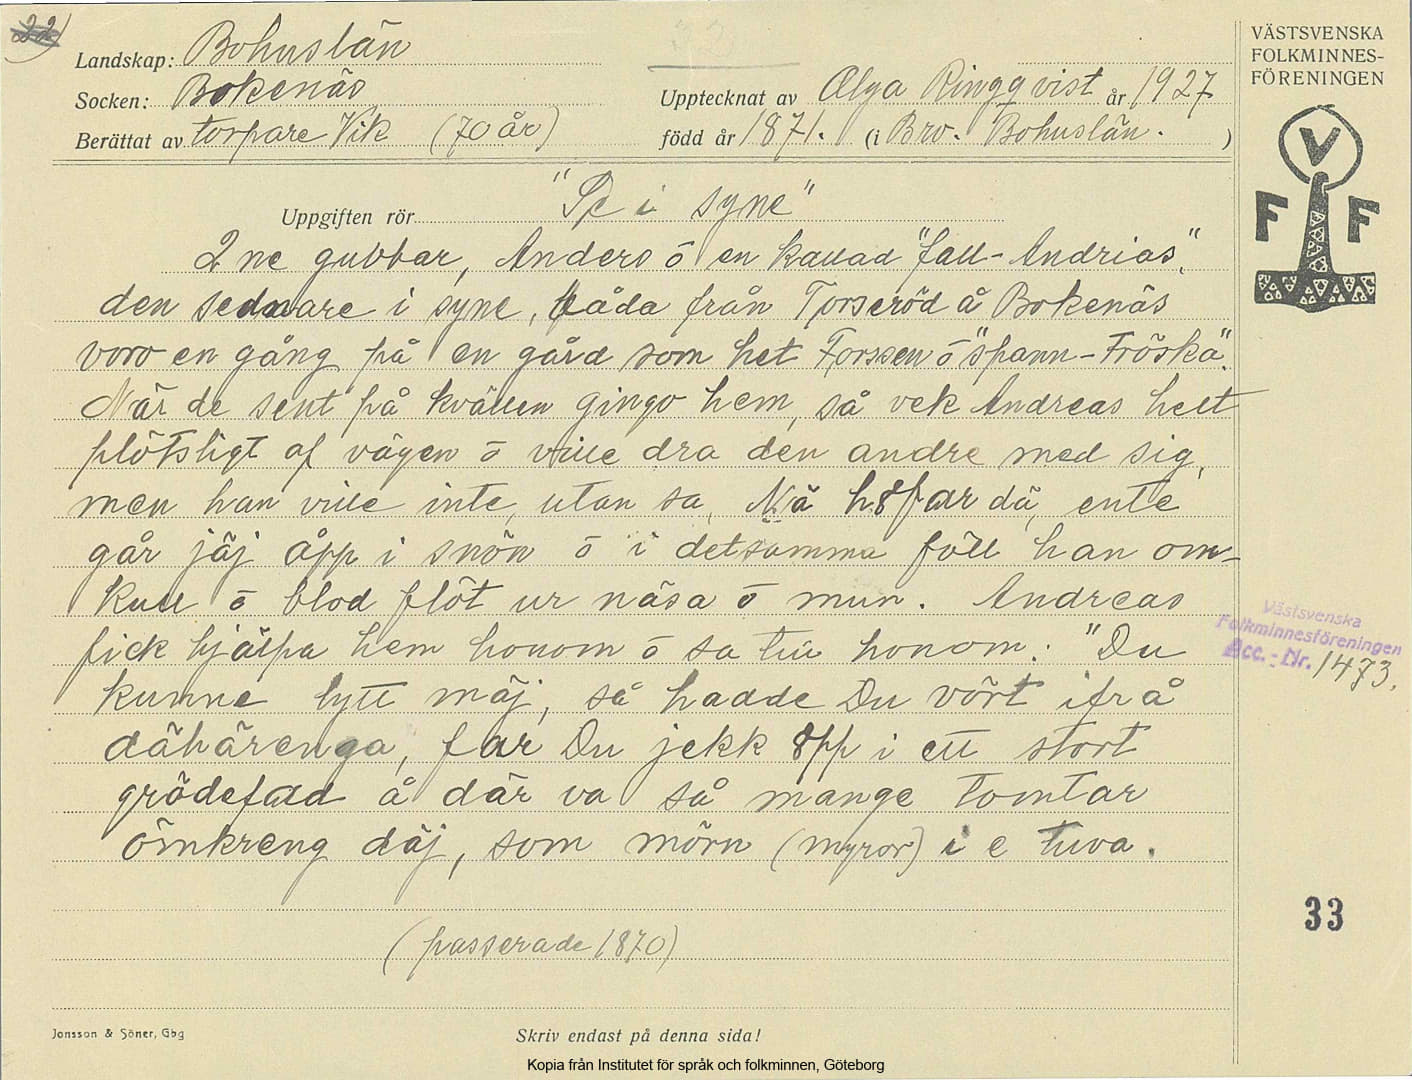 22
32
Landskap: Bohuslän
Socken: Bokenäs
Upptecknat av Olga Ringqvist år 1927
Berättat av torpare Vik (70 år)
född år 1871. (i Bro. Bohuslän. )
Uppgiften rör "Se i syne"
2 ne gubbar, Anders ō en kallad "fall-Andrias",
den sednare i syne, båda från Torseröd å Bokenäs
voro en gång på en gård som het Forssen ō "spann-Fröska".
När de sent på kvällen gingo hem, så vek Andreas helt
plötsligt af vägen ō ville dra den andre med sig,
men han ville inte, utan sa, Nä håffar dä, ente
går jäj åpp i snön ō i detsamma föll han om-
kull ō blod flöt ur näsa ō mun. Andreas
fick hjälpa hem honom ō sa till honom: "Du
kunne lytt mäj, så hadde Du vört ifrå
dähärenga, far Du jekk åpp i ett stort
grödefadd å där va så mange tomtar
ömkreng däj, som mörn (myror) i e tuva.
(passerade 1870)
VÄSTSVENSKA
FOLKMINNES-
FÖRENINGEN
V
F F
Västsvenska
Folkminnesföreningen
Acc.-Nr. 1473.
33
Jonsson & Söner, Gbg
Skriv endast på denna sida!
Kopia från Institutet för språk och folkminnen, Göteborg